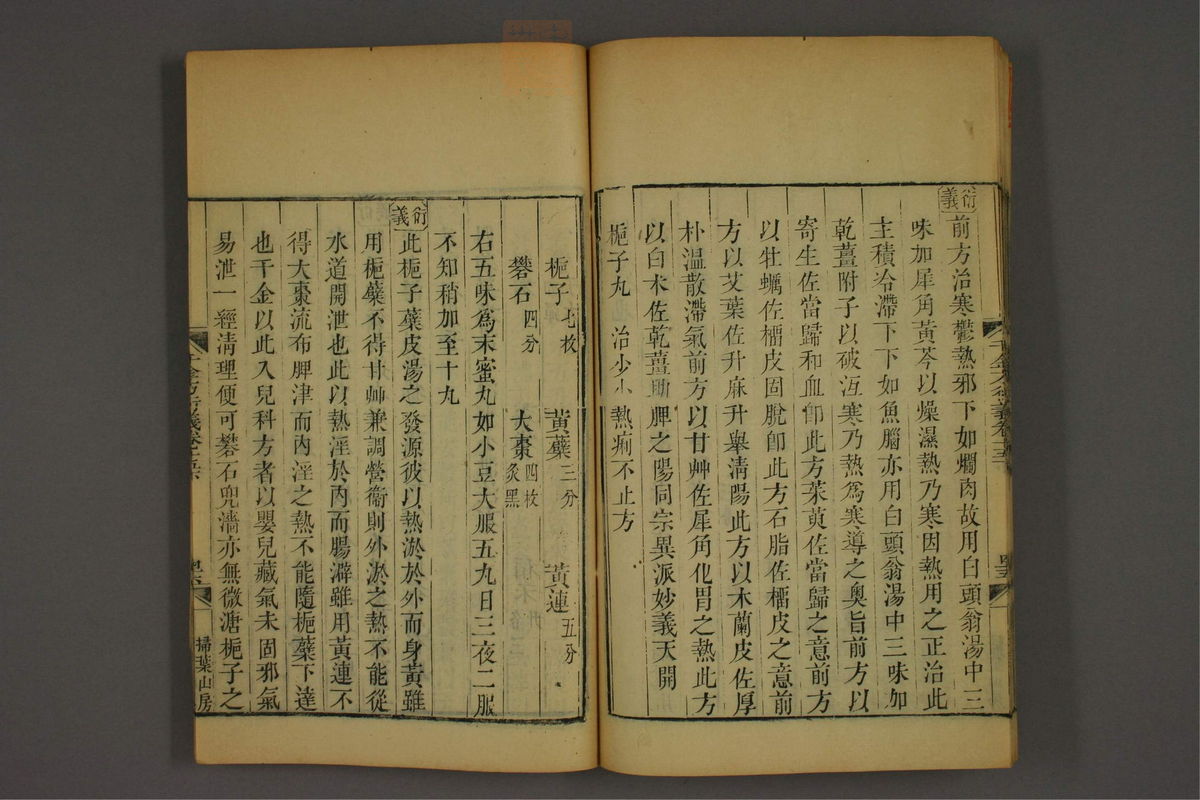 衍義
前方治寒鬱熱邪下如爛肉故用白頭翁湯中三
味加犀角黃芩以燥濕熱乃寒因熱用之正治此
主積冷滯下下如魚腦亦用白頭翁湯中三味加
乾薑附子以破沍寒乃熱爲寒導之奧旨前方以
寄生佐當歸和血卽此方茱萸佐當歸之意前方
以牡蠣佐樗皮固脫卽此方石脂佐樗皮之意前
方以艾葉佐升麻升舉淸陽此方以木蘭皮佐厚
朴溫散滯氣前方以甘艸佐犀角化胃之熱此方
以白朮佐乾薑助脾之陽同宗異派妙義天開
梔子丸 治少小熱痢不止方
梔子七枚 黃蘗三分 黃連五分
礬石四分 大棗四枚炙黑
右五味爲末蜜丸如小豆大服五丸日三夜二服
不知稍加至十丸
衍義
此梔子蘗皮湯之發源彼以熱淤於外而身黃雖
用梔蘗不得甘艸兼調營衞則外淤之熱不能從
水道開泄也此以熱淫於內而腸澼雖用黃連不
得大棗流布脾津而內淫之熱不能隨梔蘗下達
也千金以此入兒科方者以嬰兒藏氣未固邪氣
易泄一經淸理便可礬石兜濇亦無微溏梔子之
掃葉山房